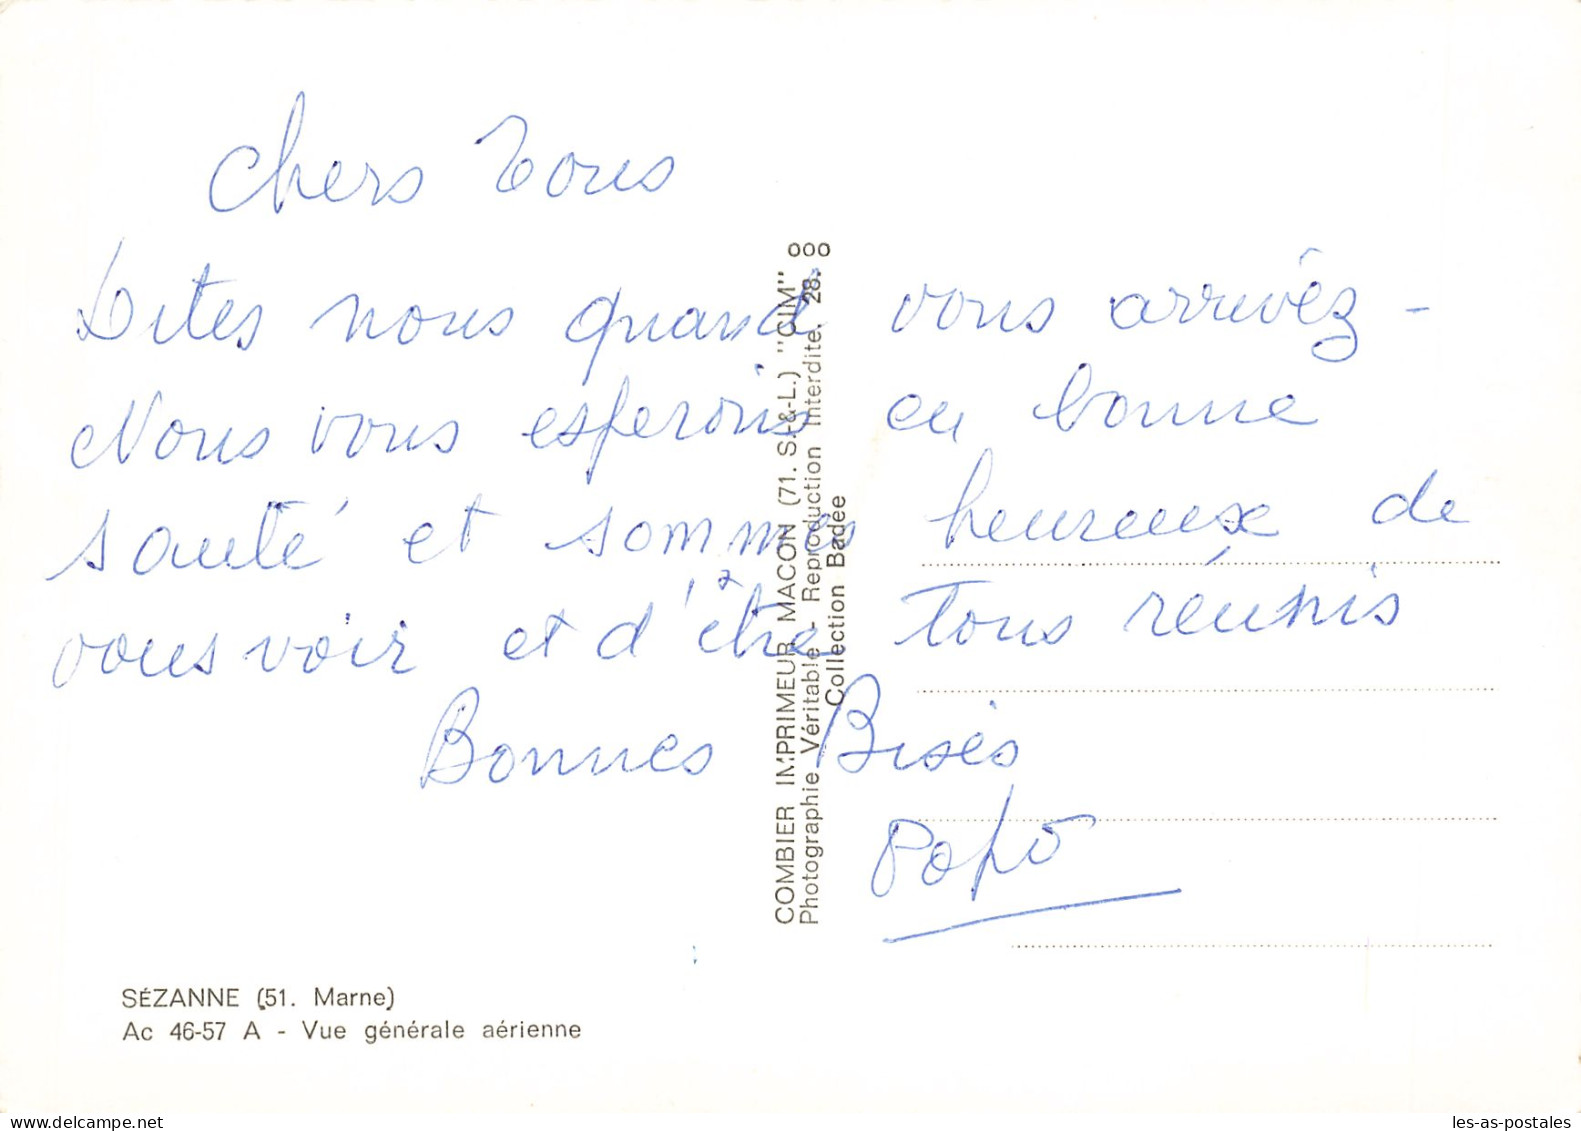 Chers Tous
Dites nous quand vous arrivéz -
Nous vous esperons en bonne
santé et sommes heureux de
vous voir et d'être tous réunis
Bonnes Bises
Popo
COMBIER IMPRIMEUR MACON (71. S.-&-L.) "CIM"
Photographie Véritable - Reproduction Interdite. 28.
Collection Badée
SÉZANNE (51. Marne)
Ac 46-57 A - Vue générale aérienne
www.delcampe.net
les-as-postales